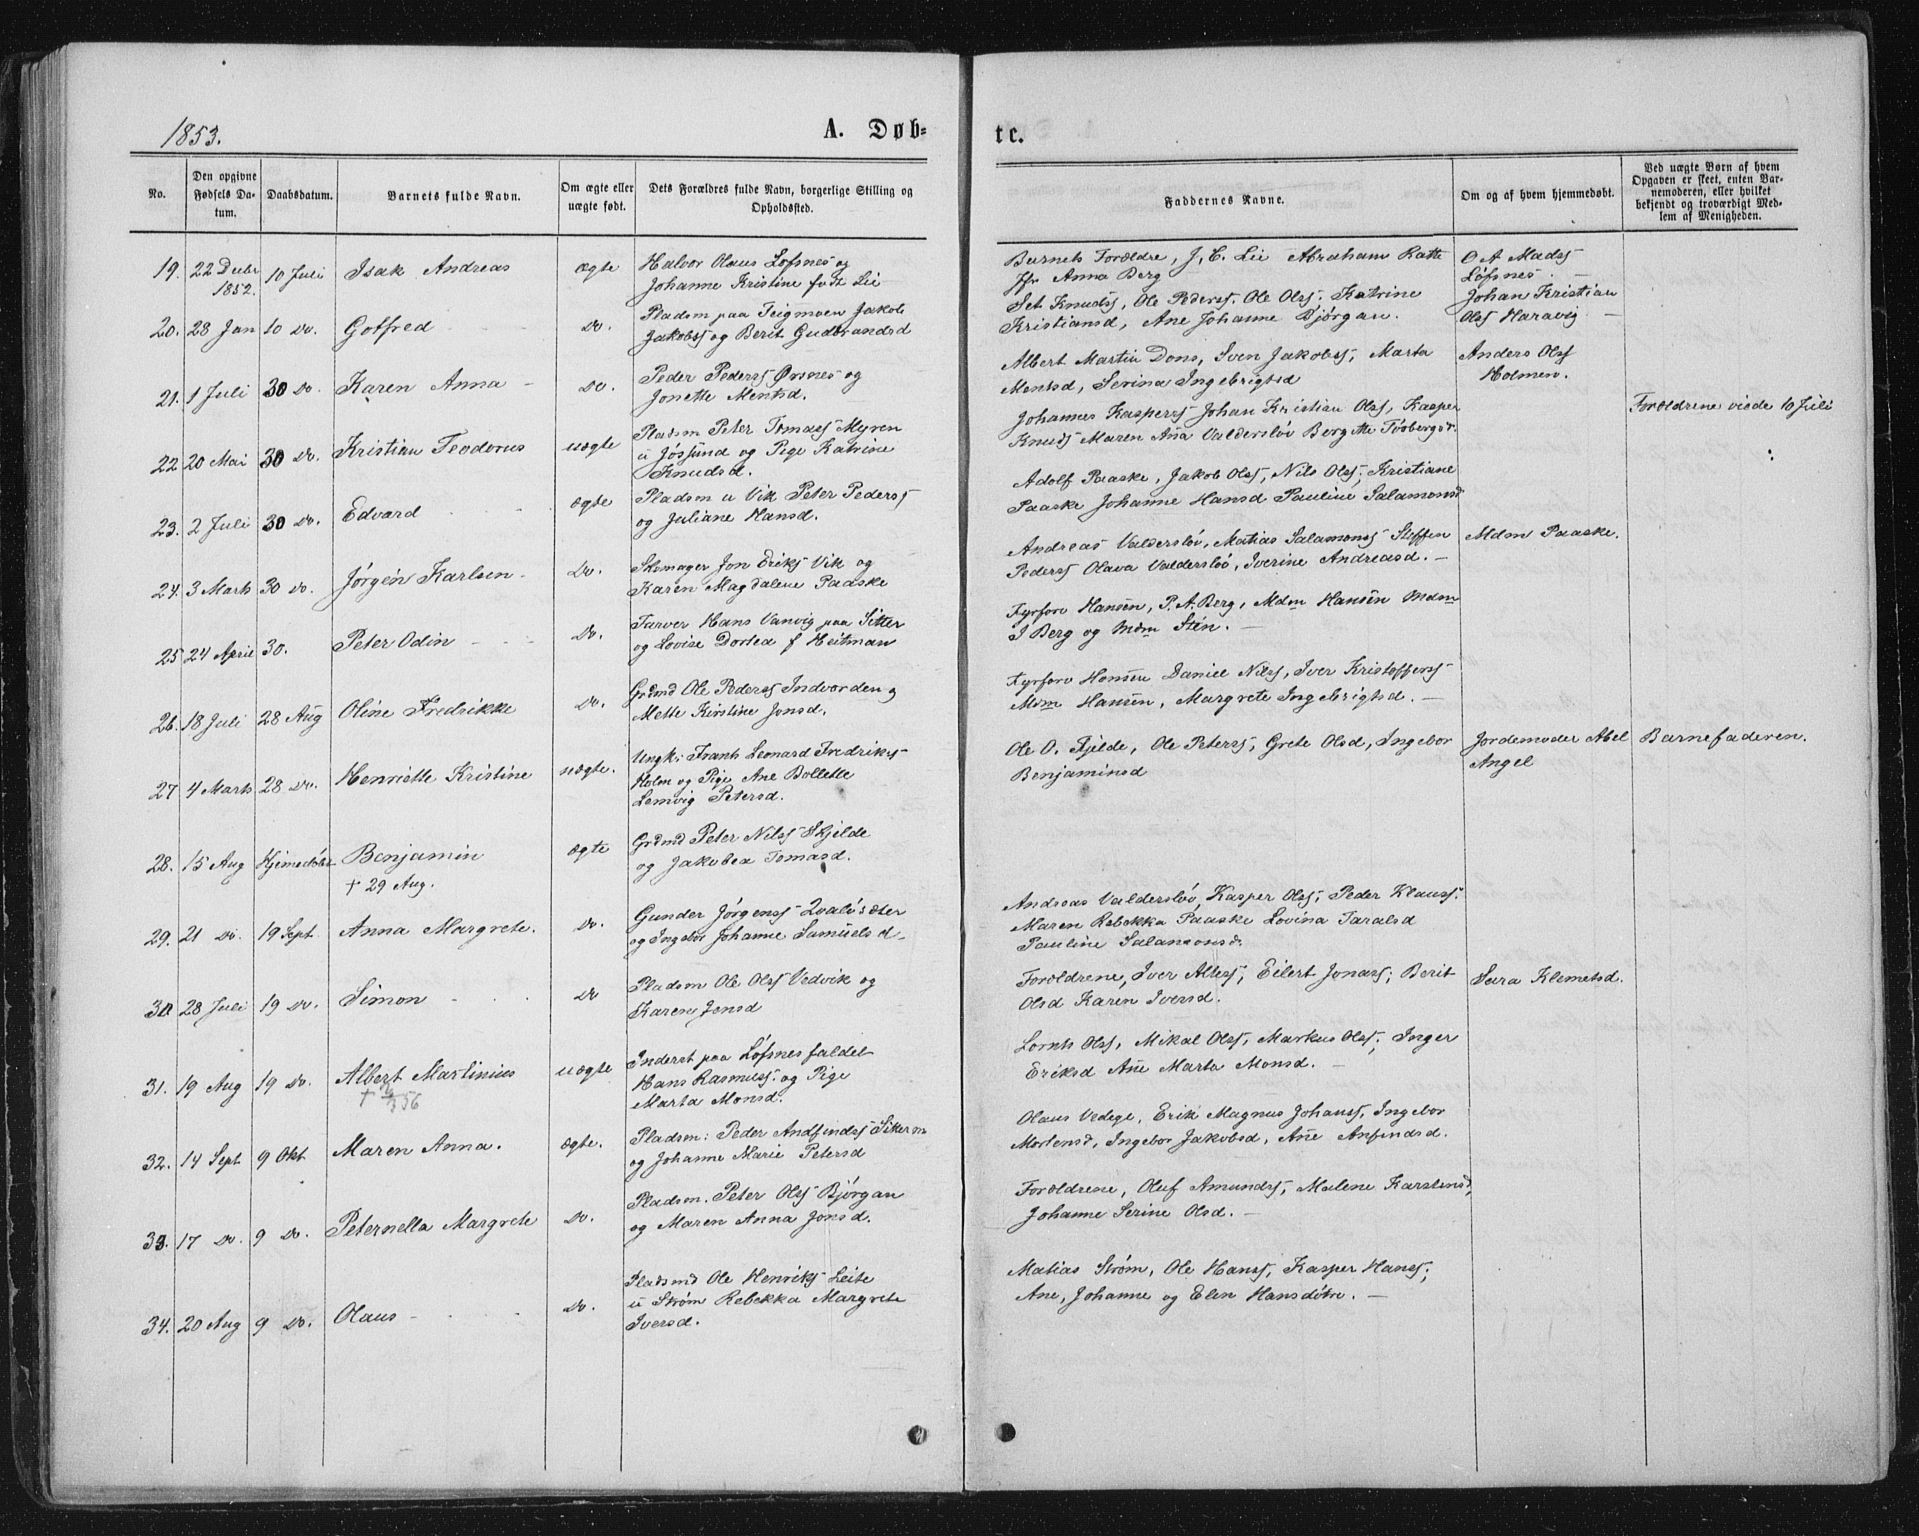 1853.
A. Døb-
te.
No.
Den opgivne Fødsels Datum.
Daabsdatum.
Barnets fulde Navn.
Om ægte eller uægte født.
Dets Forældres fulde Navn, borgerlige Stilling og Opholdssted.
Faddernes Navne.
Om og af hvem hjemmedøbt.
Ved uægte Børn af hvem Opgaven er skeet, enten Barnemoderen, eller hvilket bekjendt og troværdigt Medlem af Menigheden.
19. 22 Decbr 1852. 10 Juli Isak Andreas ægte
Halvor Olaus Løfsnes og
Johanne Kristine født Lei
Barnets Forældre, J. C. Lei Abraham Ratte
Jfr Anna Berg
O A Madss
Løfsnes
20. 28 Jan 10 Do. Gotfred Do.
Pladsm paa Teigmoen Jakob
Jakobss og Berit Gudbrandsd
Set. Knudss, Ole Pederss. Ole Olss. Katrine
Kristiansd, Ane Johanne Bjørgan.
Johan Kristian
Olss Haravig
21. 1 Juli 30 Do. Karen Anna Do.
Peder Pederss Ørsnes og
Jonette Mentsd.
Albert Martin Dons, Sven Jakobss, Marta
Mentsd, Serina Ingebrigtsd
Anders Olss
Holmen.
22 20 Mai 30 Do. Kristian Teodorus uægte
Pladsm Peter Tomass Myren
u Jøssund og Pige Katrine
Knudsd.
Johannes Kasperss Johan Kristian Olss, Kasper
Knuds Maren Ana Valdersløv Bergitte Torbergsd.
Forældrene viede 10 Juli
23. 2 Juli 30 Do. Edvard ægte
Pladsm u Vik Peter Pederss
og Juliane Hansd.
Adolf Paaske, Jakob Olss, Nils Olss, Kristiane
Paaske Johanne Hansd Pauline Salamonsd
24. 3 Marts 30 Do. Jørgen Karlsen Do.
Skomager Jon Eriks Vik og
Karen Magdalene Paaske
Andreas Valdersløv, Matias Salamonss Steffen
Pederss Olava Valdersløv, Iverine Andreasd.
Mdm Paaske.
25 24 April 30. Peter Odin Do.
Farver Hans Vanvig paa Sitter
og Lovise Dortea f Heitman
Fyrforv Hansen, P. A. Berg, Mdm Hansen Mdm
J Berg og Mdm Sten.
26. 18 Juli 28 Aug Oline Fredrikke Do.
Grdmd Ole Pederss Indvorden og
Mette Kirstine Jonsd.
Fyrforv Hansen Daniel Nilss, Iver Kristofferss
Mdm Hansen, Margrete Ingebrigtsd.
27 4 Marts 28 Do. Henriette Kristine uægte.
Ungk: Frants Leonard Fredriks
Holm og Pige Ane Bollette
Lemvig Petersd.
Ole O. Fjelde, Ole Peterss, Grete Olsd, Ingebor
Benjaminsd
Jordemoder Abel
Angel
Barnefaderen.
28. 15 Aug Hjemedøbt Benjamin ægte
† 29 Aug.
Grdmd Peter Nilss Skjelde
og Jakobea Tomasd.
29. 21 Do. 19 Sept. Anna Margrete. Do.
Gunder Jørgenss Qvaløsæter
og Ingebor Johanne Samuelsd
Andreas Valdersløv, Kasper Olss, Peder Klauss.
Maren Rebekka Paaske Lovina Taralsd
Pauline Salamonsd.
30. 28 Juli 19 Do. Simon Do
Pladsm Ole Olss Vedvik og
Karen Jensd
Forældrene, Iver Altess, Eilert Jonass; Berit
Olsd Karen Iversd.
Sara Klemetsd.
31. 19 Aug 19 Do. Albert Martinius uægte
Inderst paa Løfsnesfaldet
Hans Rasmuss. og Pige
Marta Monsd.
Lornts Olss, Mikal Olss, Markus Olss, Inger
Eriksd Ane Marta Monsd.
32. 14 Sept 9 Okt Maren Anna. ægte.
Pladsm: Peder Andfindss
og Johanne Marie Petersd
Olaus Vedege, Erik Magnus Johanss, Ingebor
Mortensd, Ingebor Jakobsd, Ane Anfindsd.
33. 17 Do. 9 Do. Peternella Margrete Do.
Pladsm. Peter Olss Bjørgan
og Maren Anna Jonsd.
Forældrene, Oluf Amundss, Malene Karstensd,
Johanne Serine Olsd.
34. 20 Aug 9 Do. Olaus Do.
Pladsmd Ole Henriks Leite
u Strøm Rebekka Margrete
Iversd.
Matias Strøm, Ole Hanss, Kasper Hanss,
Ane, Johanne og Elen Hansdøtre.